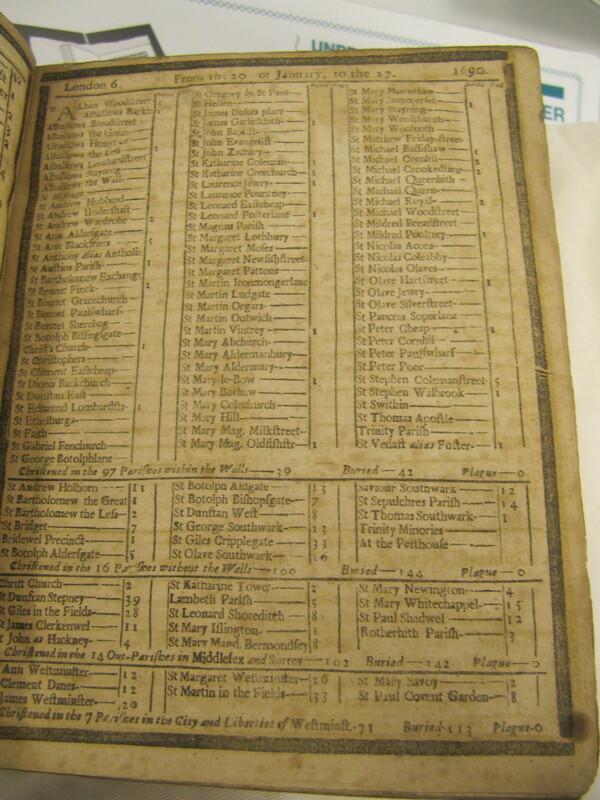 UNDE
ER
London 6. From the 20 of January, to the 27. 1690.
Buried Plag.
ALban Woodstreet
Alhallows Barkin
Alhallows Breadstreet
Alhallows the Great
Alhallows Honyl
Alhallows the Less 2
Alhallows Lumbardstreet
Alhallows Stayning
Alhallows the Wall
St Alphage
St Andrew Hubbard
St Andrew Undershaft
St Andrew Wardrobe 2
St Ann Aldersgate
St Ann Blackfriers 5
St Anthony alias Antholin
St Austins Parish 1
St Bartholomew Exchange
St Bennet Finck 1
St Bennet Gracechurch
St Bennet Paulswharf
St Bennet Sherehog
St Botolph Billingsgate
Christ's Church 1
St Christophers
St Clement Eastcheap
St Dionis Backchurch
St Dunstan East
St Edmund Lumbardstr. 1
St Ethelburga
St Faith
St Gabriel Fenchurch
St George Botolphlane
St Gregory by St Paul
St Hellen
St James Dukes place
St James Garlickhith 1
St John Baptist
St John Evangelist
St John Zachary
St Katharine Coleman
St Katharine Creechurch 1
St Laurence Jewry 1
St Laurence Pountney
St Leonard Eastcheap
St Leonard Fosterlane 1
St Magnus Parish
St Margaret Lothbury
St Margaret Moses
St Margaret Newfishstreet
St Margaret Pattons
St Martin Ironmongerlane
St Martin Ludgate
St Martin Orgars
St Martin Outwich
St Martin Vintrey 1
St Mary Abchurch
St Mary Aldermanbury
St Mary Aldermary
St Mary-le-Bow 1
St Mary Bothaw
St Mary Colechurch
St Mary Hill
St Mary Mag. Milkstreet
St Mary Mag. Oldfishstr 1
St Mary Mounthaw
St Mary Sommerset 1
St Mary Stayning
St Mary Woolchurch
St Mary Woolnoth
St Matthew Friday-street
St Michael Bassishaw 1
St Michael Cornhil 2
St Michael Crookedlane 2
St Michael Queenhith
St Michael Quern
St Michael Royal 2
St Michael Woodstreet
St Mildred Breadstreet
St Mildred Poultney 1
St Nicolas Acons
St Nicolas Coleabby
St Nicolas Olaves
St Olave Hartstreet 1
St Olave Jewry
St Olave Silverstreet
St Pancras Soperlane
St Peter Cheap 1
St Peter Cornhil
St Peter Paulswharf
St Peter Poor
St Stephen Colemanstreet 5
St Stephen Walbrook 1
St Swithin
St Thomas Apostle
Trinity Parish
St Vedast alias Foster 1
Christened in the 97 Parishes within the Walls 39 Buried 42 Plague 0
St Andrew Holborn 11
St Bartholomew the Great 1
St Bartholomew the Less 2
St Bridget 7
Bridewel Precinct 1
St Botolph Aldersgate 5
St Botolph Aldgate 13
St Botolph Bishopsgate 7
St Dunstan West 8
St George Southwark 13
St Giles Cripplegate 33
St Olave Southwark 16
Saviour Southwark 12
St Sepulchres Parish 14
St Thomas Southwark 1
Trinity Minories
At the Pesthouse
Christened in the 16 Parishes without the Walls 100 Buried 144 Plague 0
Christ Church 2
St Dunstan Stepney 39
St Giles in the Fields 28
St James Clerkenwel 11
St John at Hackney 4
St Katharine Tower 2
Lambeth Parish 5
St Leonard Shoreditch 8
St Mary Islington
St Mary Magd. Bermondsey 8
St Mary Newington 4
St Mary Whitechappel 15
St Paul Shadwel 12
Rotherhith Parish 3
Christened in the 14 Out-Parishes in Middlesex and Surrey 102 Buried 142 Plague 0
Ann Westminster 12
Clement Danes 12
James Westminster 20
St Margaret Westminster 26
St Martin in the Fields 33
St Mary Savoy 2
St Paul Covent Garden 8
Christened in the 7 Parishes in the City and Liberties of Westminst. 71 Buried 113 Plague 0